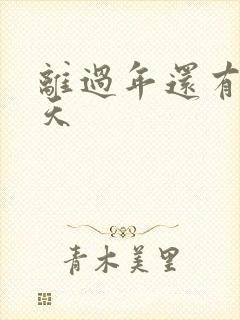 離過年還有
天
青木美里